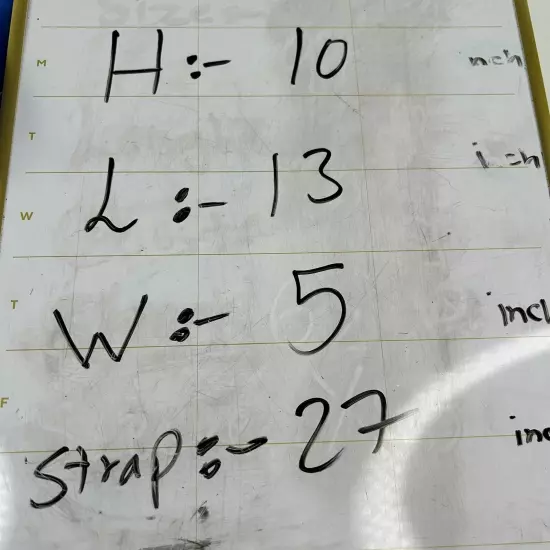 M H:- 10 nch
T
L:- 13 i ch
W
T W:- 5 incl
F
Strap:- 27 inc